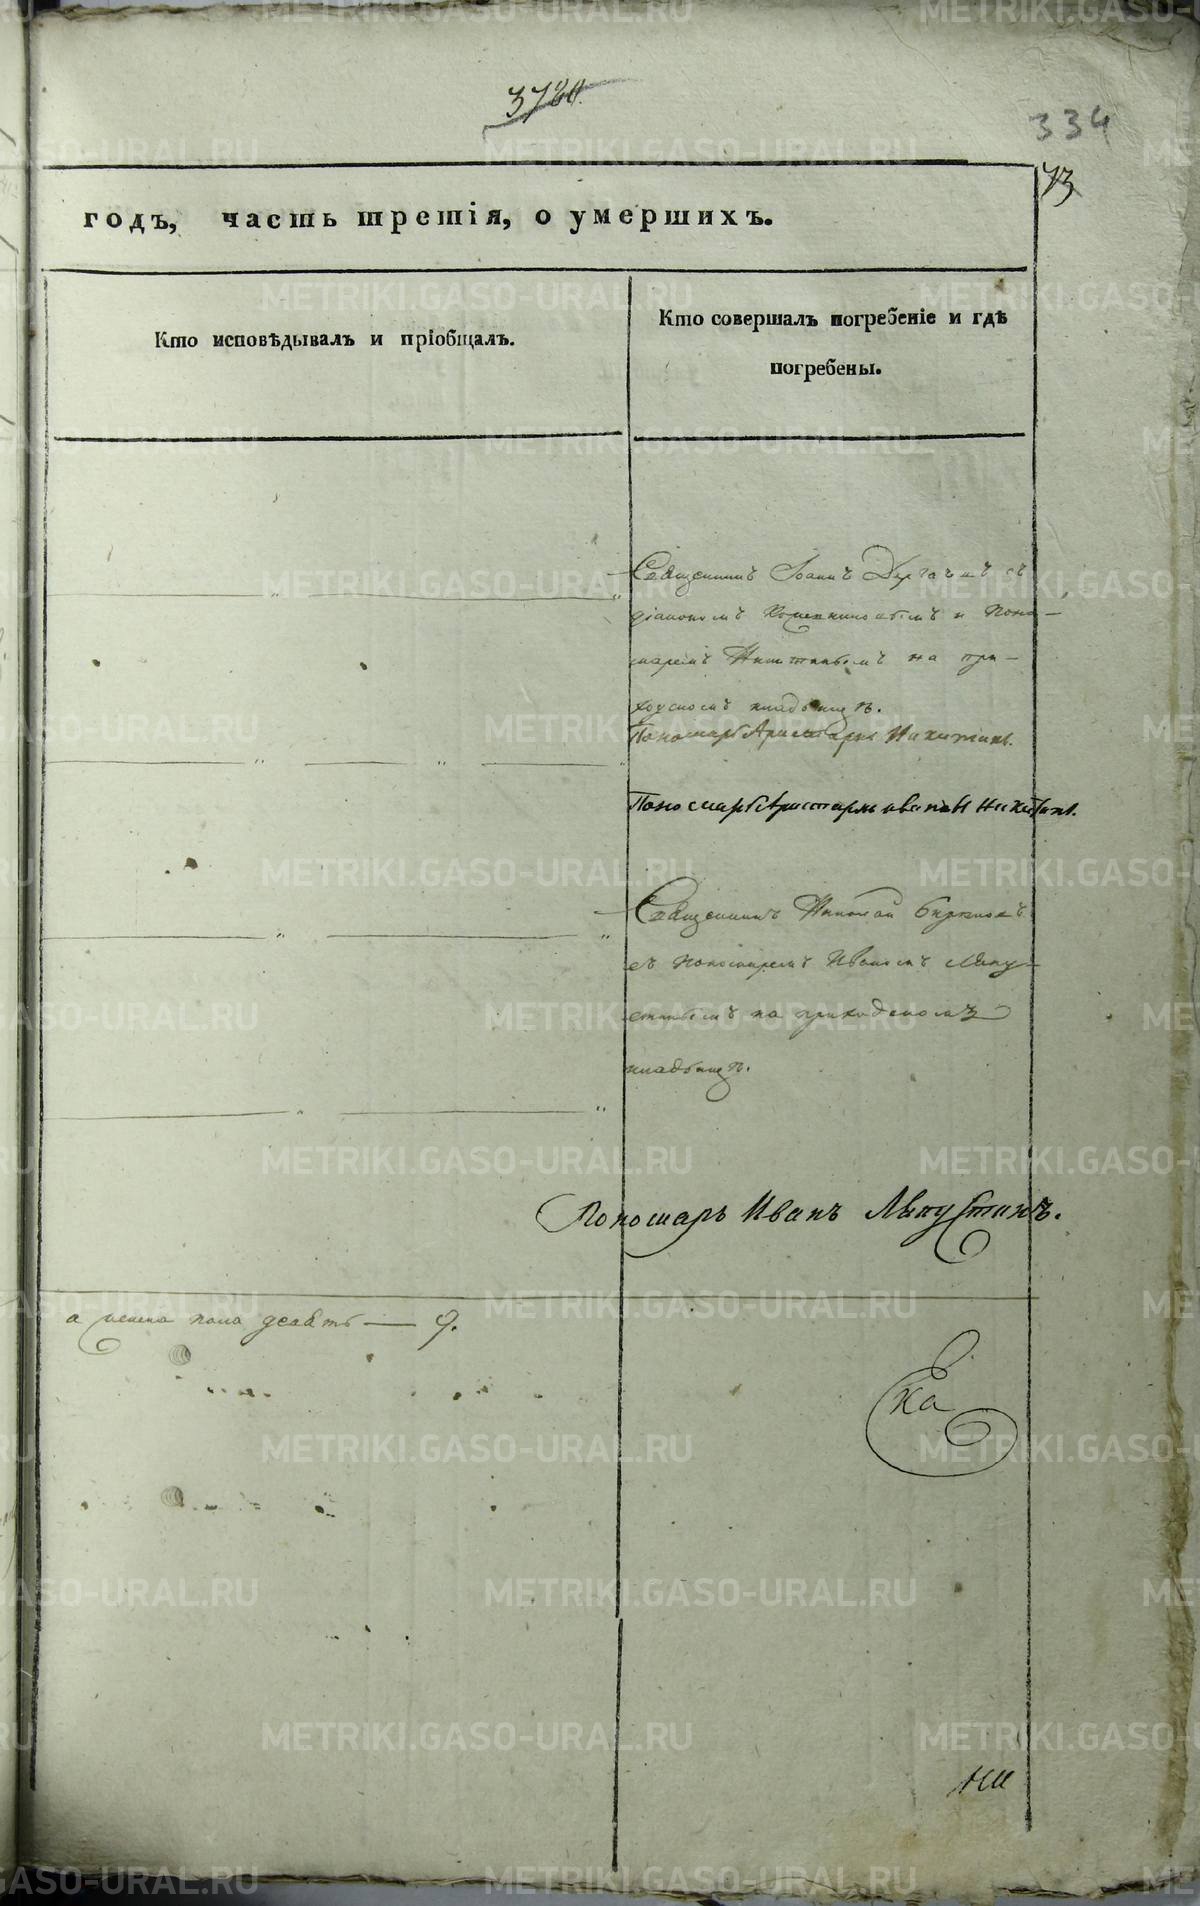 3720
334
73
годъ, часть третія, о умершихъ.
Кто исповѣдывалъ и пріобщалъ.
Кто совершалъ погребеніе и гдѣ
погребены.
Священникъ Іоаннъ съ
діакономъ и Поно-
маремъ Никитинымъ на при-
ходскомъ кладбищѣ.
Пономарь Аристархъ Никитинъ.
Пономарь Аристархъ Ивановъ Никитинъ.
Священникъ Николай Бирюковъ
съ Пономаремъ Иваномъ Ляпу-
стинымъ на приходскомъ
кладбищѣ.
Пономарь Иванъ Ляпустинъ.
а женска пола девять — 9.
Ека
METRIKI.GASO-URAL.RU